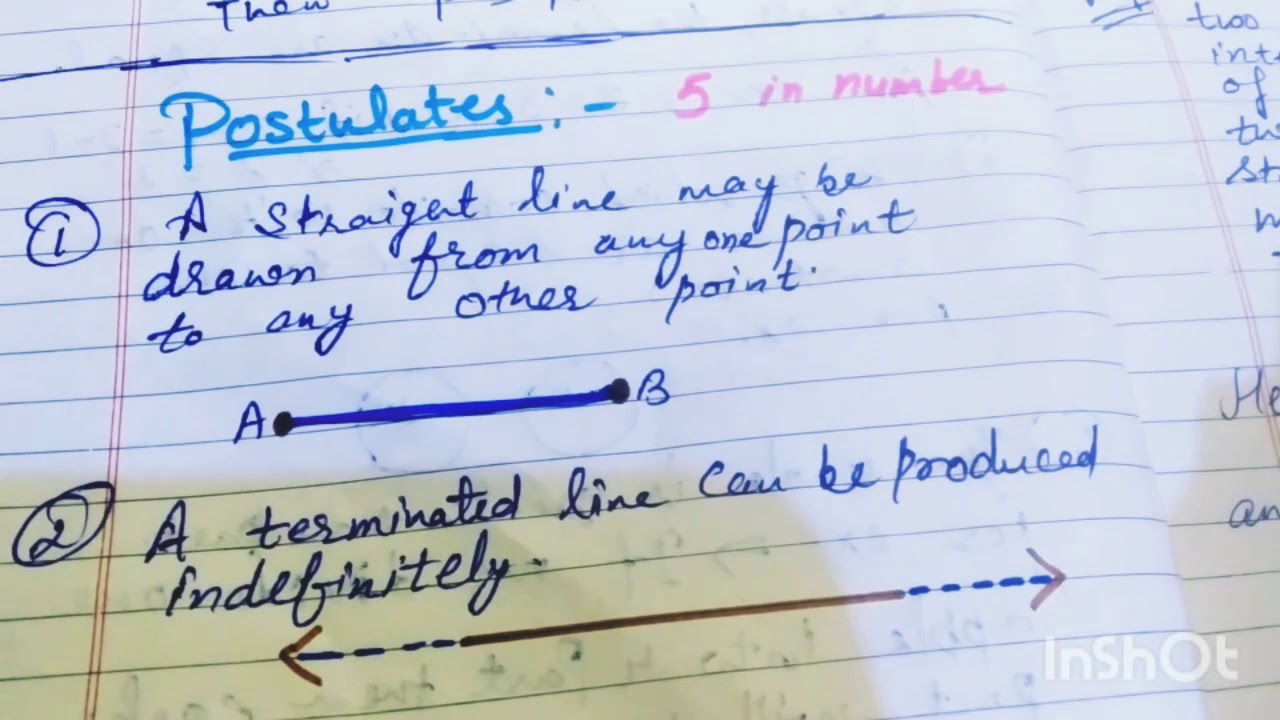 Then
Postulates :- 5 in number
① A straight line may be
drawn from any one point
to any other point.
A B
② A terminated line can be produced
indefinitely.
two
of
InShOt